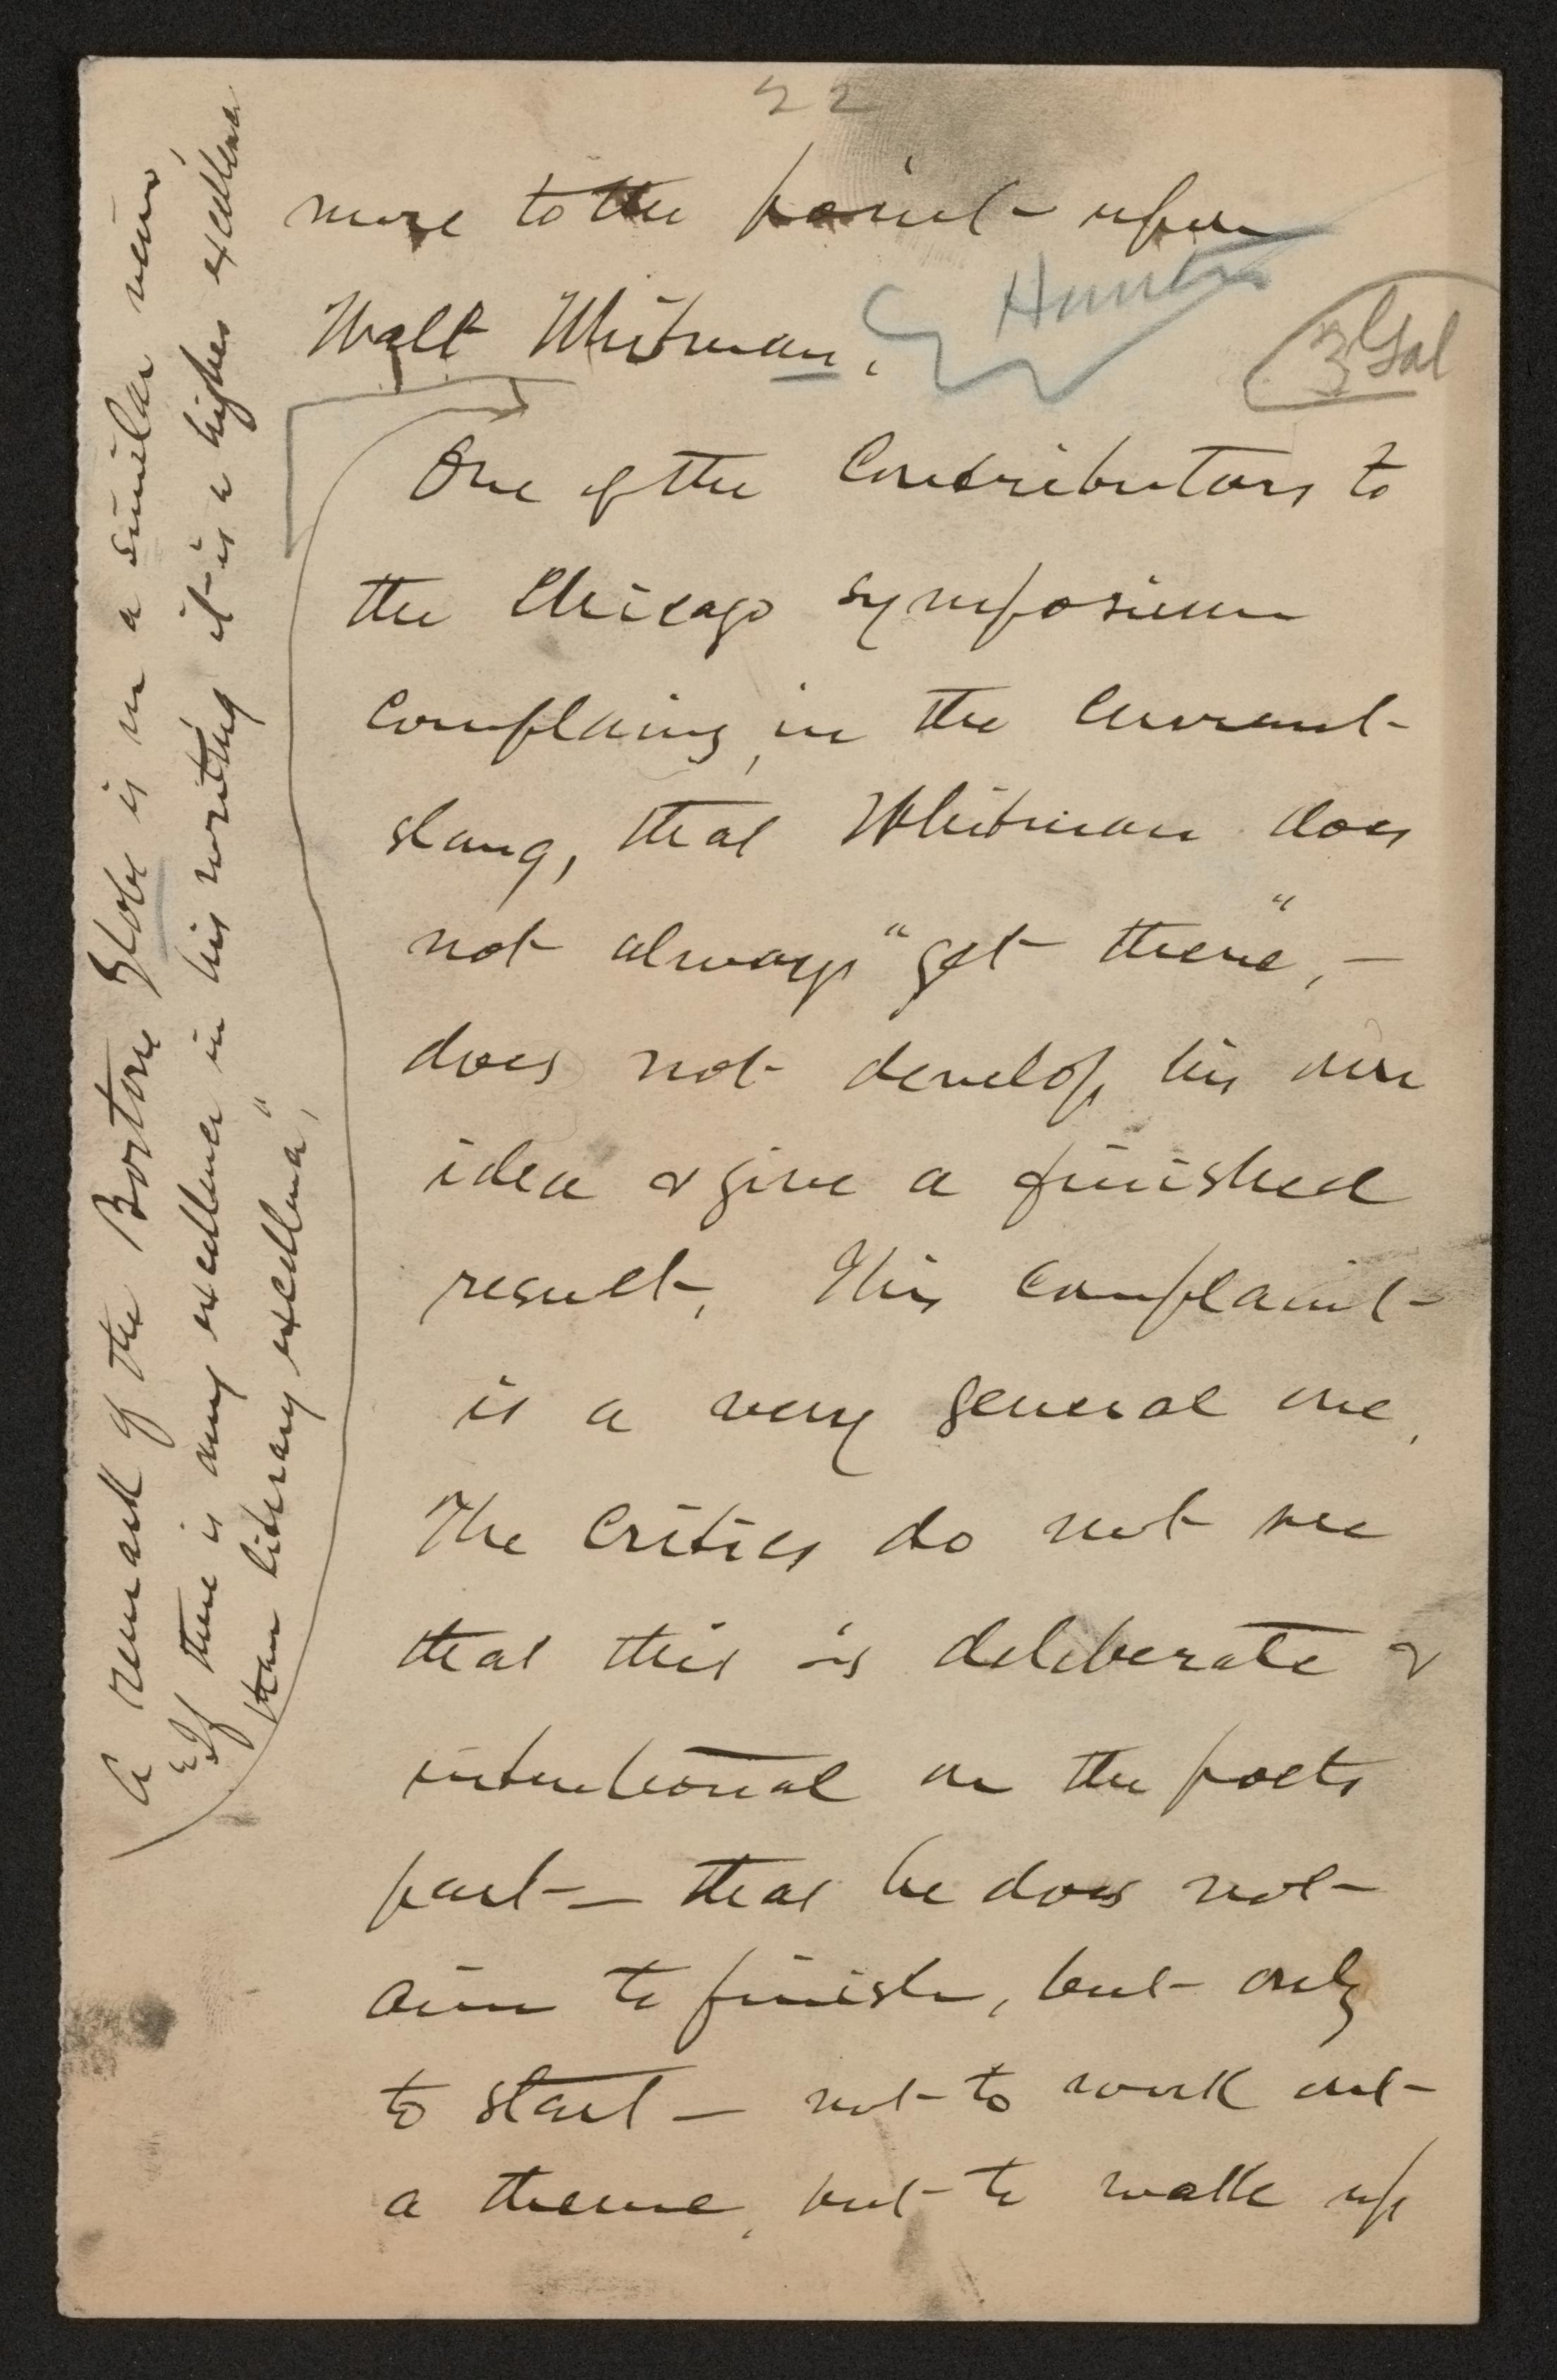 22
more to the point - upon
Walt Whitman.
3 Gal
One of the Contributors to
the Chicago symposium
complains, in the current
slang, that Whitman does
not always "get there", —
does not develop his own
idea & give a finished
result. This complaint
is a very general one.
The Critics do not see
that this is deliberate &
intentional on the poets
part — that he does not
aim to finish, but only
to start — not to work out
a theme, but to walk up
A remark of the Boston Globe is in a similar vein,
"If there is any excellence in his writing it is a higher excellence
than literary excellence",